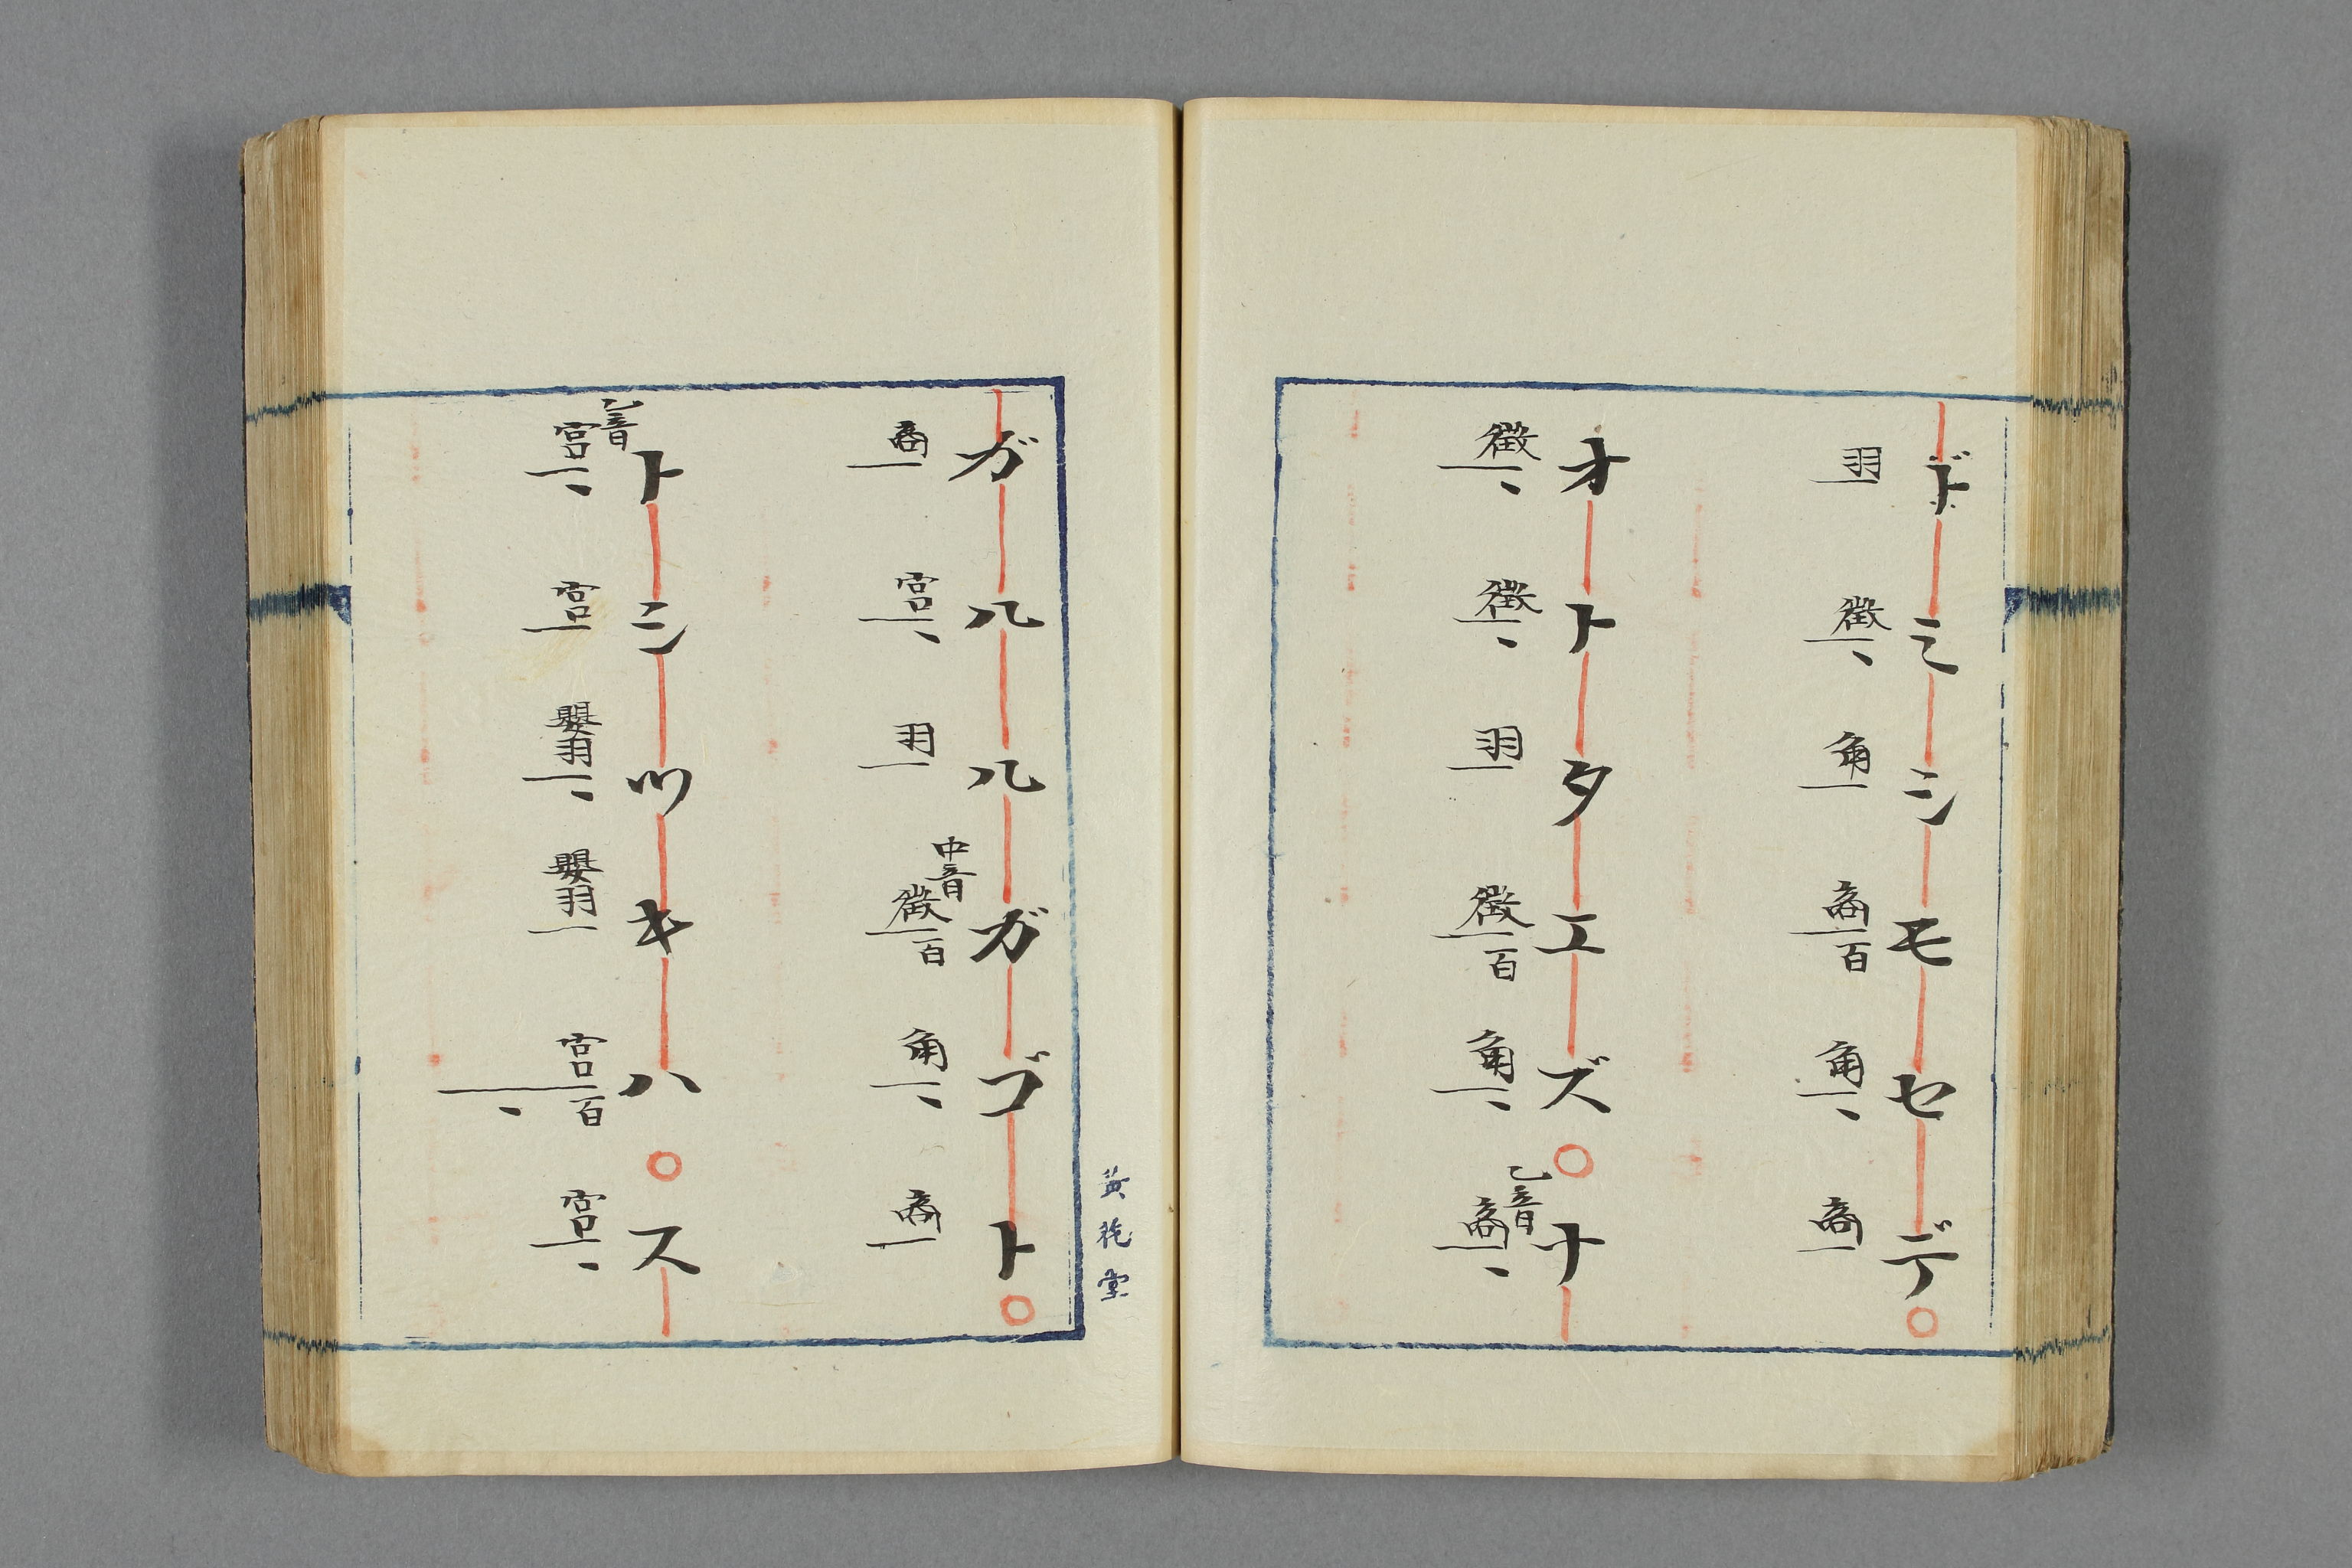 ドミシモセデ○
羽 徴、 角 商百 角、 商
オトタエズ○ナ
徴、 徴、 羽 徴百 角、 乙音 商、
ガルルガゴト○
商 宮、 羽 中音 徴百 角、 商
トシツキハ○ス
乙音 宮、 宮 嬰羽、 嬰羽 宮百、 宮、
堂